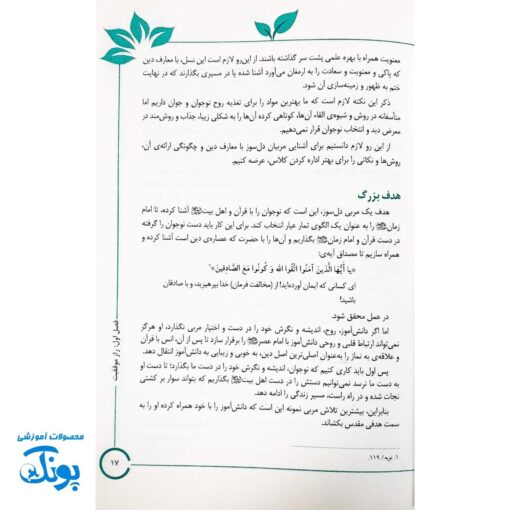 معنویت همراه با بهره علمی پشت سر گذاشته باشند. از این‌رو لازم است این نسل، با معارف دین
که پاکی و معنویت و سعادت را به ارمغان می‌آورد آشنا شده پا در مسیری بگذارند که در نهایت
ختم به ظهور و زمینه‌سازی آن شود.
ذکر این نکته لازم است که ما بهترین مواد را برای تغذیه روح نوجوان و جوان داریم اما
متأسفانه در روش و شیوه‌ی القاء آن‌ها، کوتاهی کرده آن‌ها را به شکلی زیبا، جذاب و روش‌مند در
معرض دید و انتخاب نوجوان قرار نمی‌دهیم.
از این رو لازم دانستیم برای آشنایی مربیان دل‌سوز با معارف دین و چگونگی ارائه‌ی آن،
روش‌ها و نکاتی را برای بهتر اداره کردن کلاس، عرضه کنیم.
هدف بزرگ
هدف یک مربی دل‌سوز، این است که نوجوان را با قرآن و اهل بیت آشنا کرده، تا امام
زمان را به عنوان یک الگوی تمار عیار انتخاب کند. برای این کار باید دست نوجوان را گرفته
در دست قرآن و امام زمان بگذاریم و آن‌ها را با حضرت که عصاره‌ی دین است آشنا کرده و
همراه سازیم تا مصداق آیه‌ی:
«یا أَیُّهَا الَّذینَ آمَنُوا اتَّقُوا الله وَ کُونُوا مَعَ الصَّادِقینَ»۱
ای کسانی که ایمان آورده‌اید! از (مخالفت فرمان) خدا بپرهیزید، و با صادقان
باشید!
در عمل محقق شود.
اما اگر دانش‌آموز، روح، اندیشه و نگرش خود را در دست و اختیار مربی بگذارد، او هرگز
نمی‌تواند ارتباط قلبی و روحی دانش‌آموز با امام عصر را برقرار سازد تا پس از آن، انس با قرآن
و علاقه‌ی به نماز را به‌عنوان اصلی‌ترین اصل دین، به خوبی و زیبایی به دانش‌آموز انتقال دهد.
پس اول باید کاری کنیم که نوجوان، اندیشه و نگرش خود را در دست ما بگذارد؛ تا دست او
به دست ما نرسد نمی‌توانیم دستش را در دست اهل بیت بگذاریم که بتواند سوار بر کشتی
نجات شده و در راه راست، مسیر زندگی را ادامه دهد.
بنابراین، بیشترین تلاش مربی نمونه این است که دانش‌آموز را با خود همراه کرده او را به
سمت هدفی مقدس بکشاند.
۱. توبه/ ۱۱۹.
فصل اول: راز موفقیت
۱۷
محصولات آموزشی
پونک